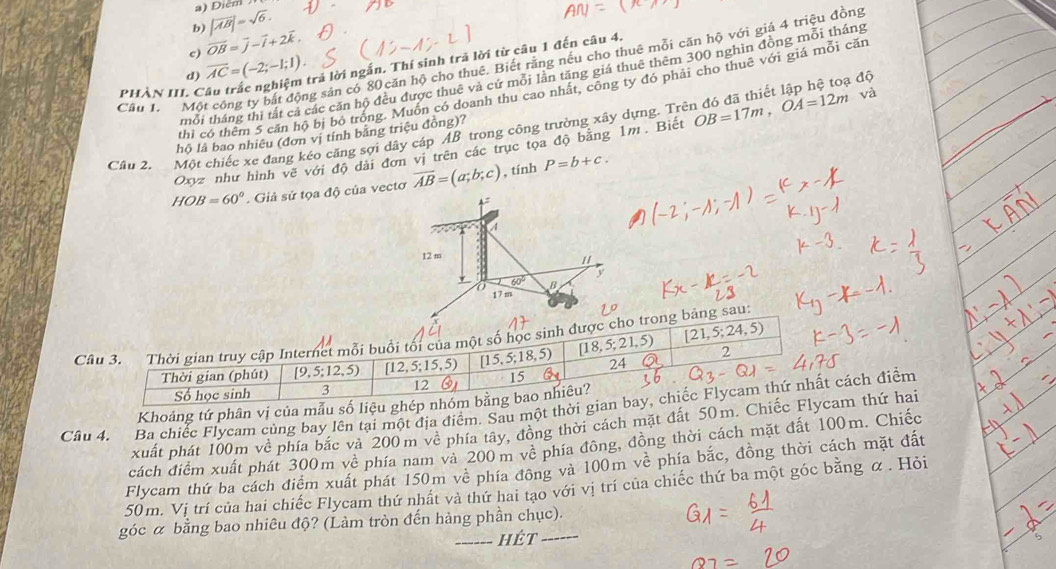 a) Điểm
b) |AB| = √6.
c) OB = j - i + 2k.
(1;-1;2)
d) AC = (-2;-1;1). S
PHẦN III. Câu trắc nghiệm trả lời ngắn. Thí sinh trả lời từ câu 1 đến câu 4.
Câu 1. Một công ty bất động sản có 80 căn hộ cho thuê. Biết rằng nếu cho thuê mỗi căn hộ với giá 4 triệu đồng
mỗi tháng thì tất cả các căn hộ đều được thuê và cứ mỗi lần tăng giá thuê thêm 300 nghìn đồng mỗi tháng
thì có thêm 5 căn hộ bị bỏ trống. Muốn có doanh thu cao nhất, công ty đó phải cho thuê với giá mỗi căn
hộ là bao nhiêu (đơn vị tính bằng triệu đồng)?
Câu 2. Một chiếc xe đang kéo căng sợi dây cáp AB trong công trường xây dựng. Trên đó đã thiết lập hệ toạ độ
Oxyz như hình vẽ với độ dài đơn vị trên các trục tọa độ bằng 1m. Biết OB = 17m, OA = 12m và
HOB = 60⁰. Giả sử tọa độ của vectơ AB = (a;b;c), tính P = b + c.
z
A
12 m
H
y
O
60°
B
17 m
x
(-2;-1;-1) = K x - K
K.y-1
K-3.
K = 1/3
= K AN
Ky - K = -1.
K-3 = -1
Câu 3. Thời gian truy cập Internet mỗi buổi tối của một số học sinh được cho trong bảng sau:
11 14 17 20 23
Thời gian (phút) [9,5;12,5) [12,5;15,5) [15,5;18,5) [18,5;21,5) [21,5;24,5)
Số học sinh 3 12 15 24 2
Q3 - Q1 = 4,75
Khoảng tứ phân vị của mẫu số liệu ghép nhóm bằng bao nhiêu?
Câu 4. Ba chiếc Flycam cùng bay lên tại một địa điểm. Sau một thời gian bay, chiếc Flycam thứ nhất cách điểm
xuất phát 100m về phía bắc và 200m về phía tây, đồng thời cách mặt đất 50m. Chiếc Flycam thứ hai
cách điểm xuất phát 300m về phía nam và 200m về phía đông, đồng thời cách mặt đất 100m. Chiếc
Flycam thứ ba cách điểm xuất phát 150m về phía đông và 100m về phía bắc, đồng thời cách mặt đất
50m. Vị trí của hai chiếc Flycam thứ nhất và thứ hai tạo với vị trí của chiếc thứ ba một góc bằng α. Hỏi
góc α bằng bao nhiêu độ? (Làm tròn đến hàng phần chục).
Q1 = 61/4
------ HẾT ------
= 20